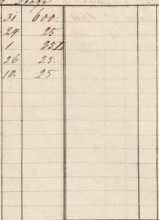 31 600.
24 25
1.
26 25.
10. 25.